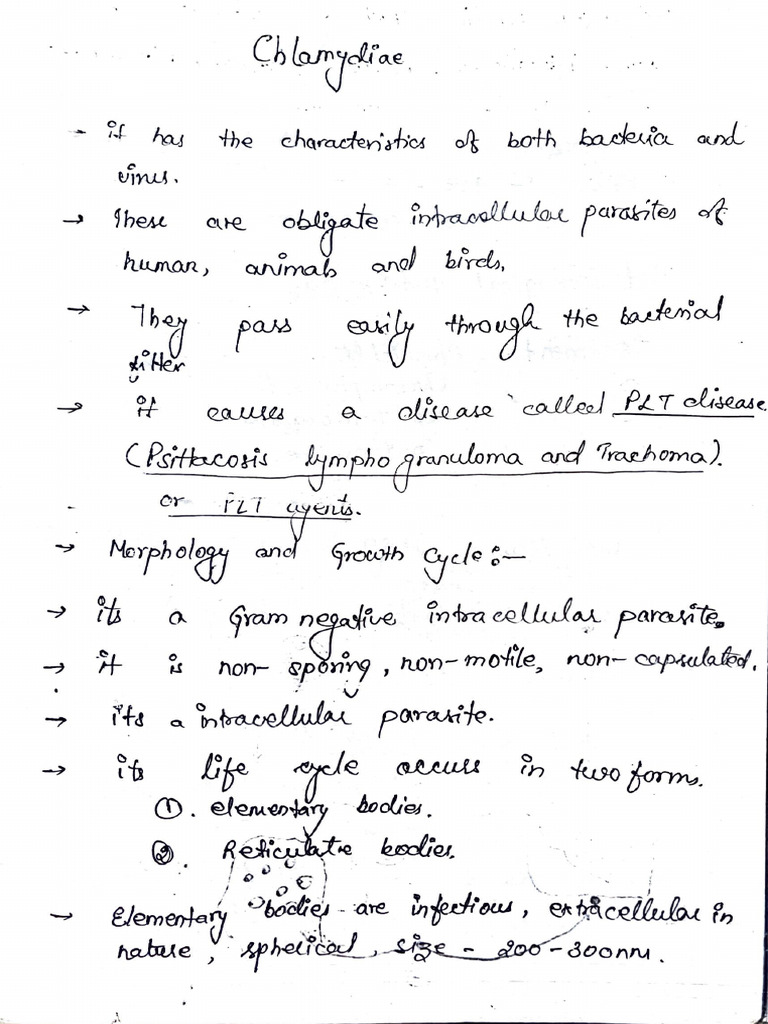 Chlamydiae
- it has the characteristics of both bacteria and
virus.
→ These are obligate intracellular parasites of
human, animals and birds.
→ They pass easily through the bacterial
filter
→ it causes a disease called PLT disease.
(Psittacosis lympho granuloma and Trachoma).
or PLT agents.
→ Morphology and Growth Cycle:-
→ its a Gram negative intracellular parasite.
→ it is non-sporing, non-motile, non-capsulated.
→ its a intracellular parasite.
→ its life cycle occurs in two forms.
①. elementary bodies.
②. Reticulate bodies.
→ Elementary bodies are infectious, extracellular in
nature, spherical, size - 200-300nm.